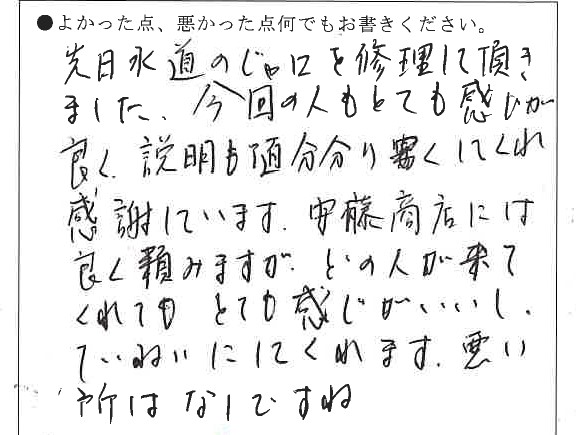 ●よかった点、悪かった点何でもお書きください。
先日水道のじゃ口を修理して頂き
ました、今回の人もとても感じが
良く、説明も随分分り易くしてくれ
感謝しています。安藤商店には
良く頼みますが、どの人が来て
くれても とても感じがいいし、
ていねいにしてくれます。悪い
所はなしですね